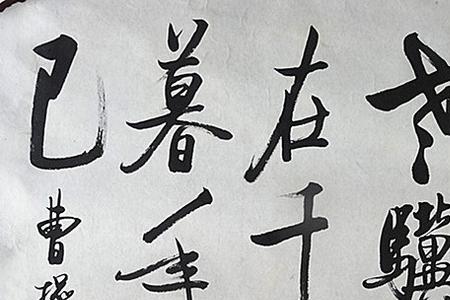 老驥
在千
暮年
已
曹操